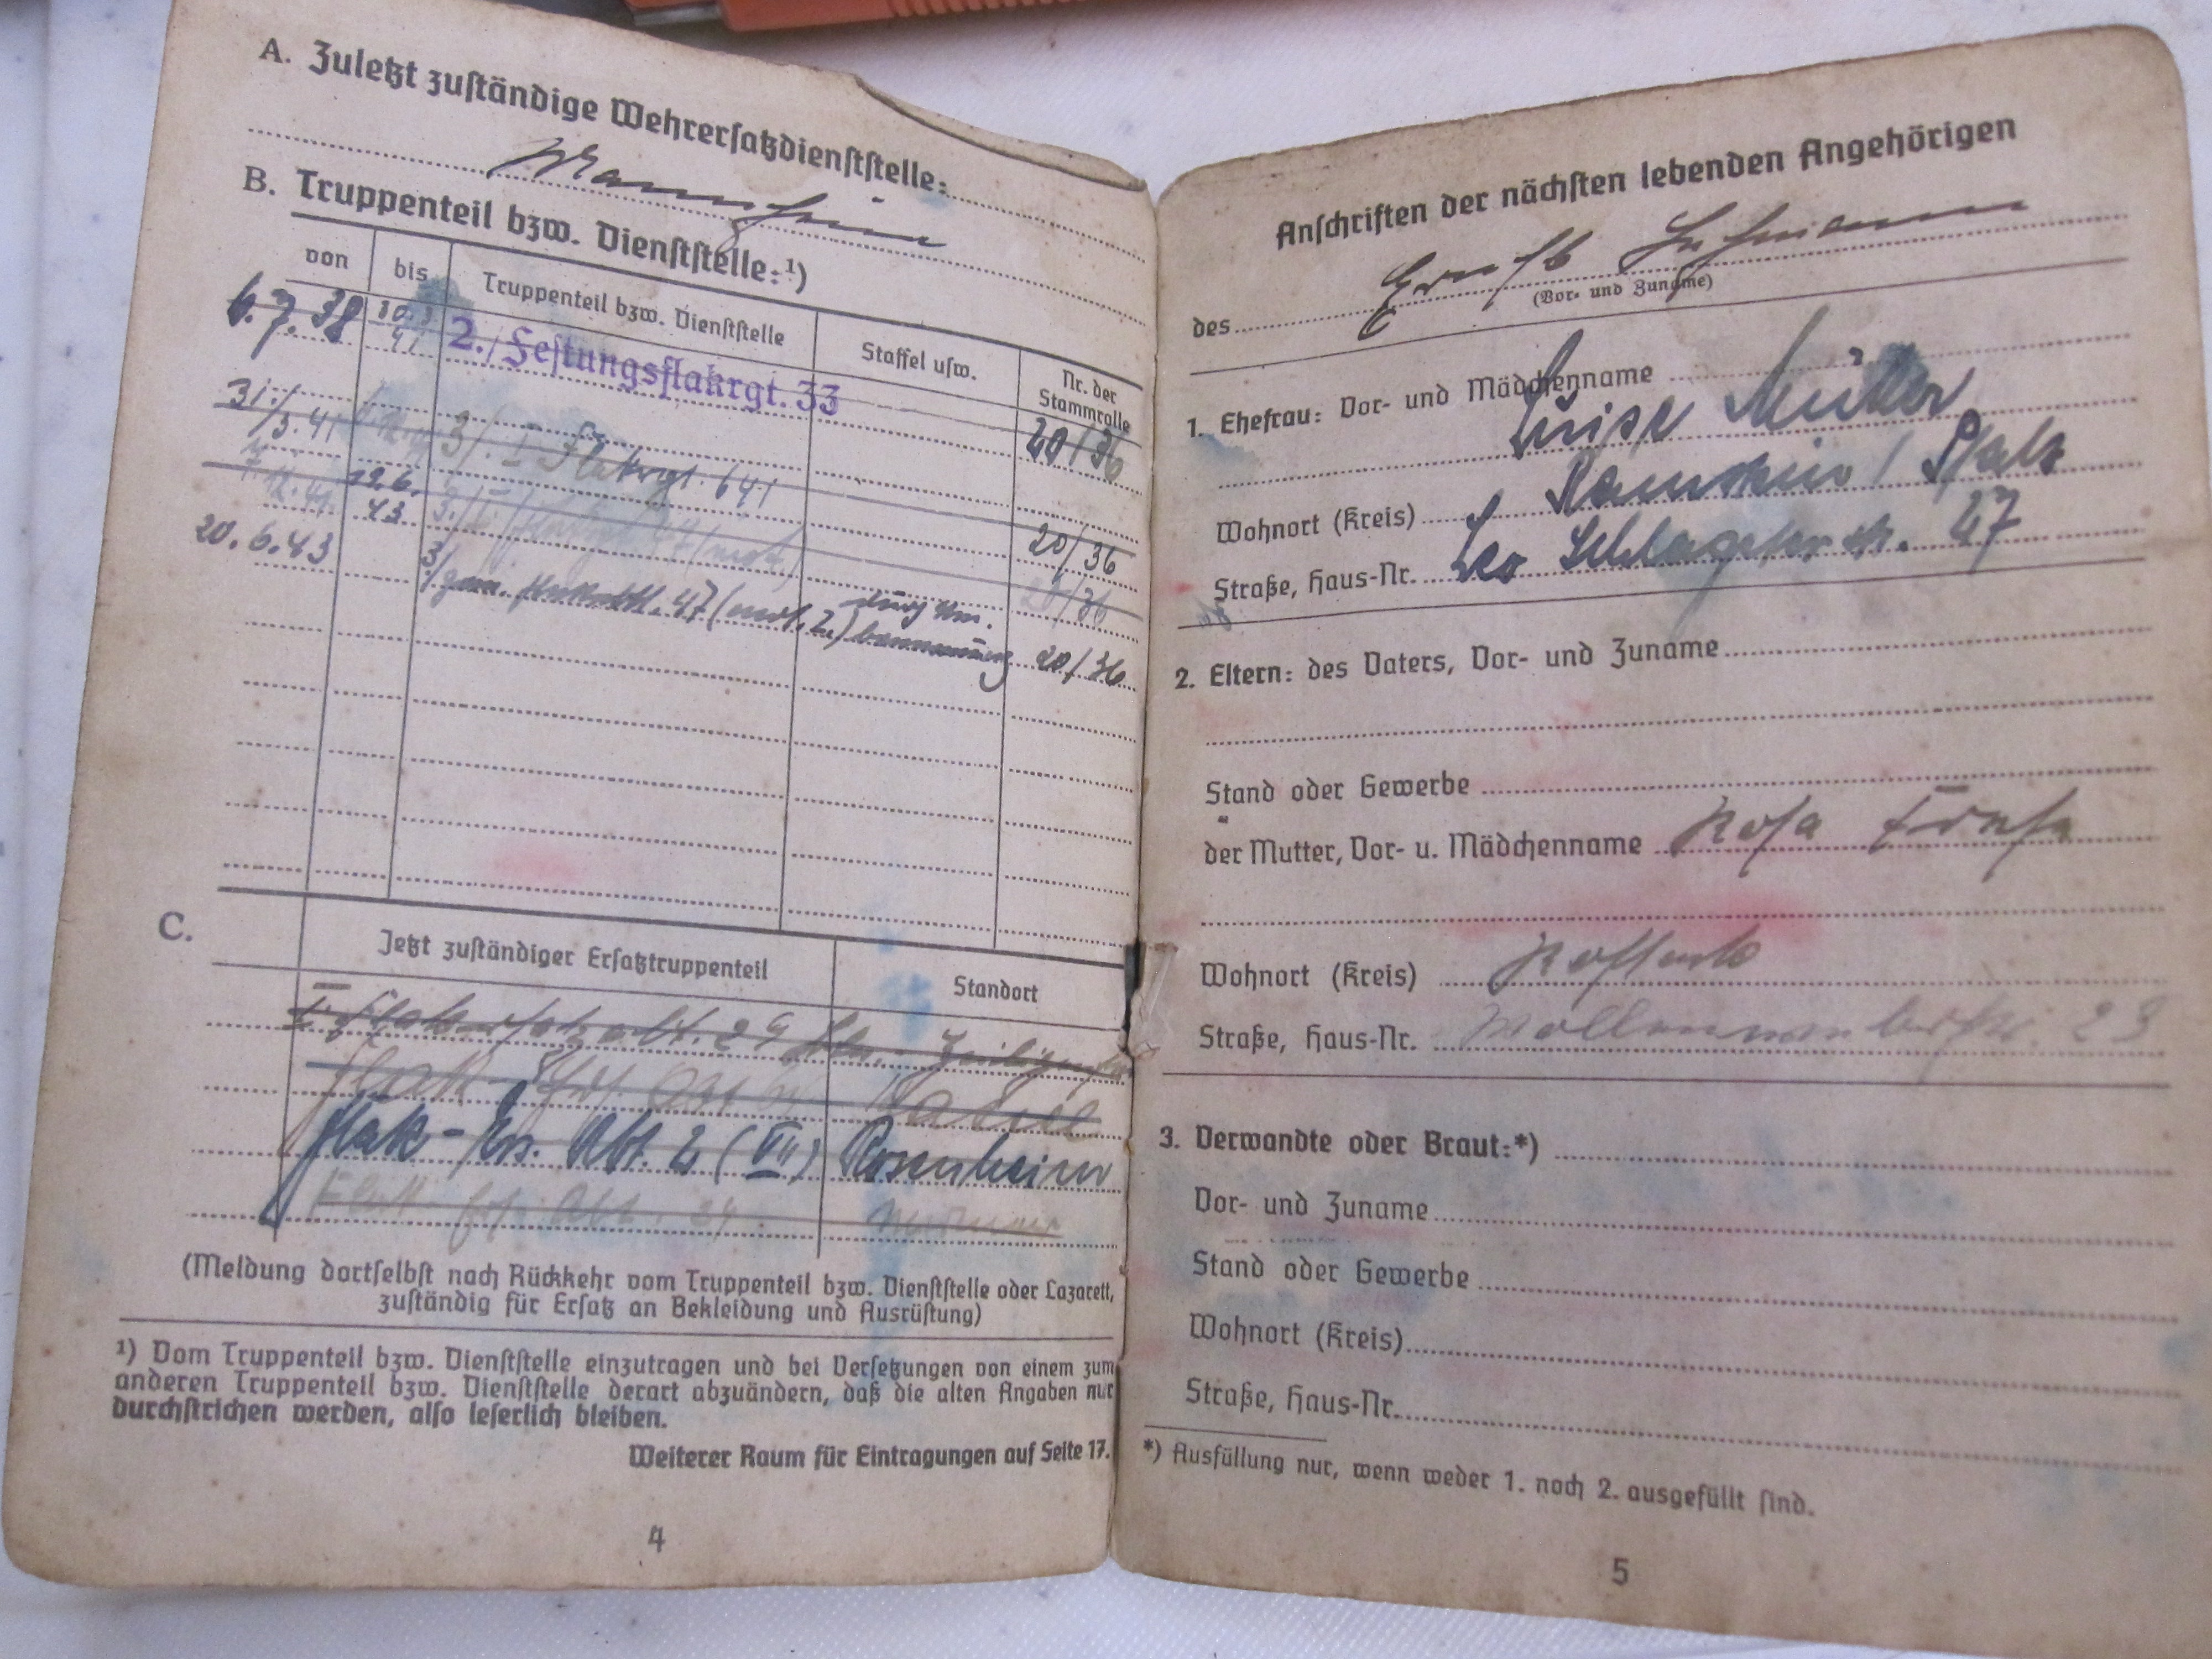 A. Zuletzt zuständige Wehrersatzdienststelle:
Mannheim
B. Truppenteil bzw. Dienststelle:¹)
von bis Truppenteil bzw. Dienststelle Staffel usw. Nr. der Stammrolle
6.7.38 10.3 41 2./Festungsflakrgt. 33 20/36
31./3.41 3/. I Flakrgt. 641 20/36
19.6. 43 20/36
20.6.43 3/gem. 47 (mot. Z.) 20/36
C.
Jetzt zuständiger Ersatztruppenteil Standort
Flakersatzabt. 29
Flak-
Flak-Ers. Abt. 2 (VII) Rosenheim
Abt.
(Meldung dortselbst nach Rückkehr vom Truppenteil bzw. Dienststelle oder Lazarett,
zuständig für Ersatz an Bekleidung und Ausrüstung)
¹) Vom Truppenteil bzw. Dienststelle einzutragen und bei Versetzungen von einem zum
anderen Truppenteil bzw. Dienststelle derart abzuändern, daß die alten Angaben nur
durchstrichen werden, also leserlich bleiben.
Weiterer Raum für Eintragungen auf Seite 17.
4
Anschriften der nächsten lebenden Angehörigen
des Ernst
(Vor- und Zuname)
1. Ehefrau: Vor- und Mädchenname
Luise Müller
Wohnort (Kreis) Ramstein / Pfalz
Straße, Haus-Nr. Leo Schlageterstr. 47
2. Eltern: des Vaters, Vor- und Zuname
Stand oder Gewerbe
der Mutter, Vor- u. Mädchenname Rosa
Wohnort (Kreis)
Straße, Haus-Nr. 23
3. Verwandte oder Braut:*)
Vor- und Zuname
Stand oder Gewerbe
Wohnort (Kreis)
Straße, Haus-Nr.
*) Ausfüllung nur, wenn weder 1. noch 2. ausgefüllt sind.
5